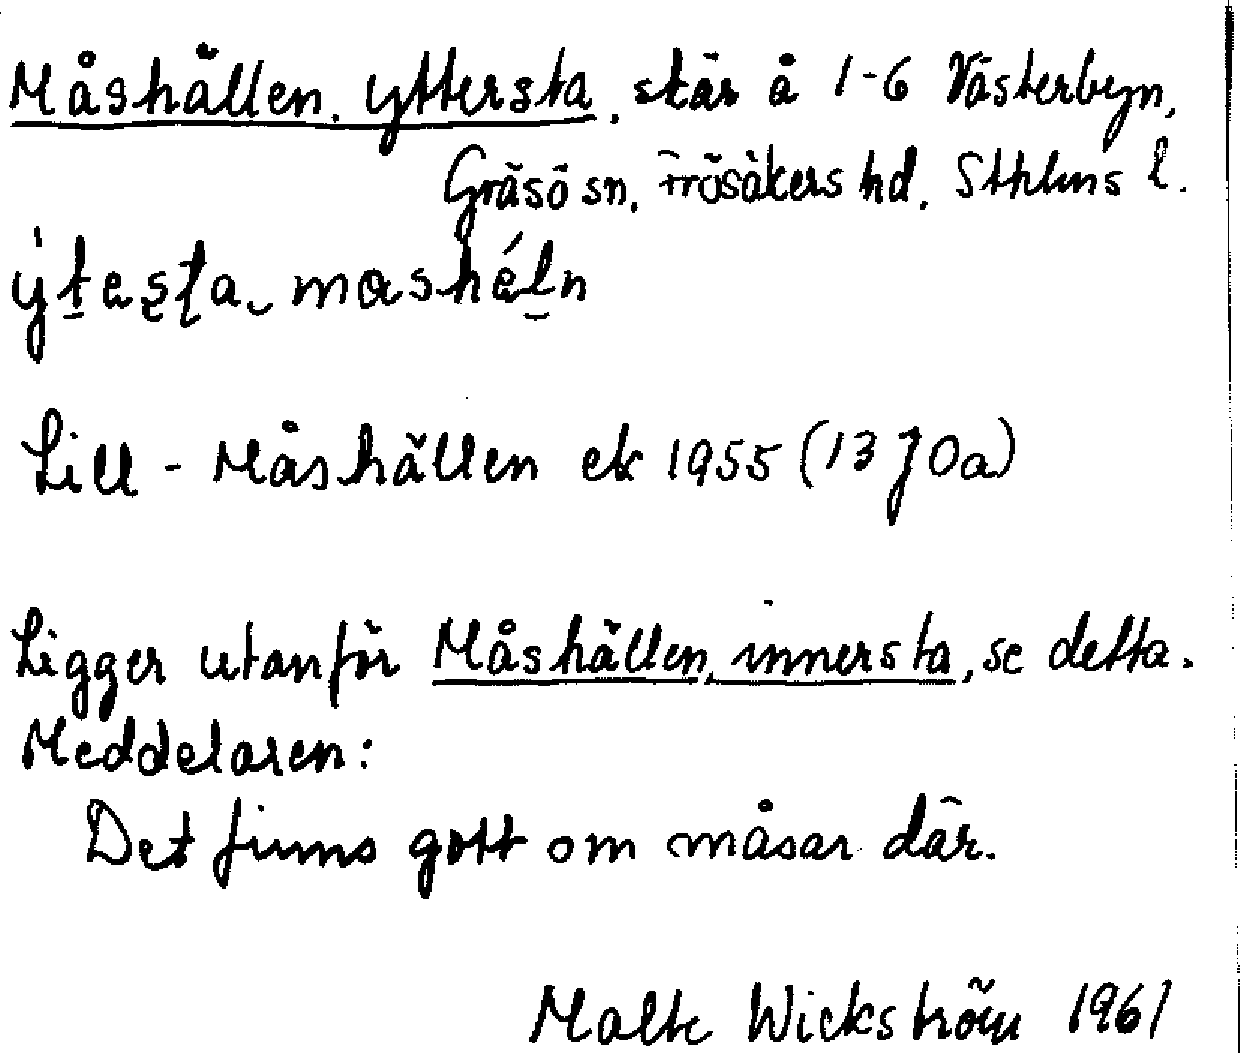 Måshällen, yttersta, skär å 1-6 Västerbyn,
Gräsö sn. Frösåkers hd. Sthlms l.
ýtesta mashéln
Lill-Måshällen ek 1955 (13 J 0a)
Ligger utanför Måshällen, innersta, se detta.
Meddelaren:
Det finns gott om måsar där.
Malte Wickström 1961